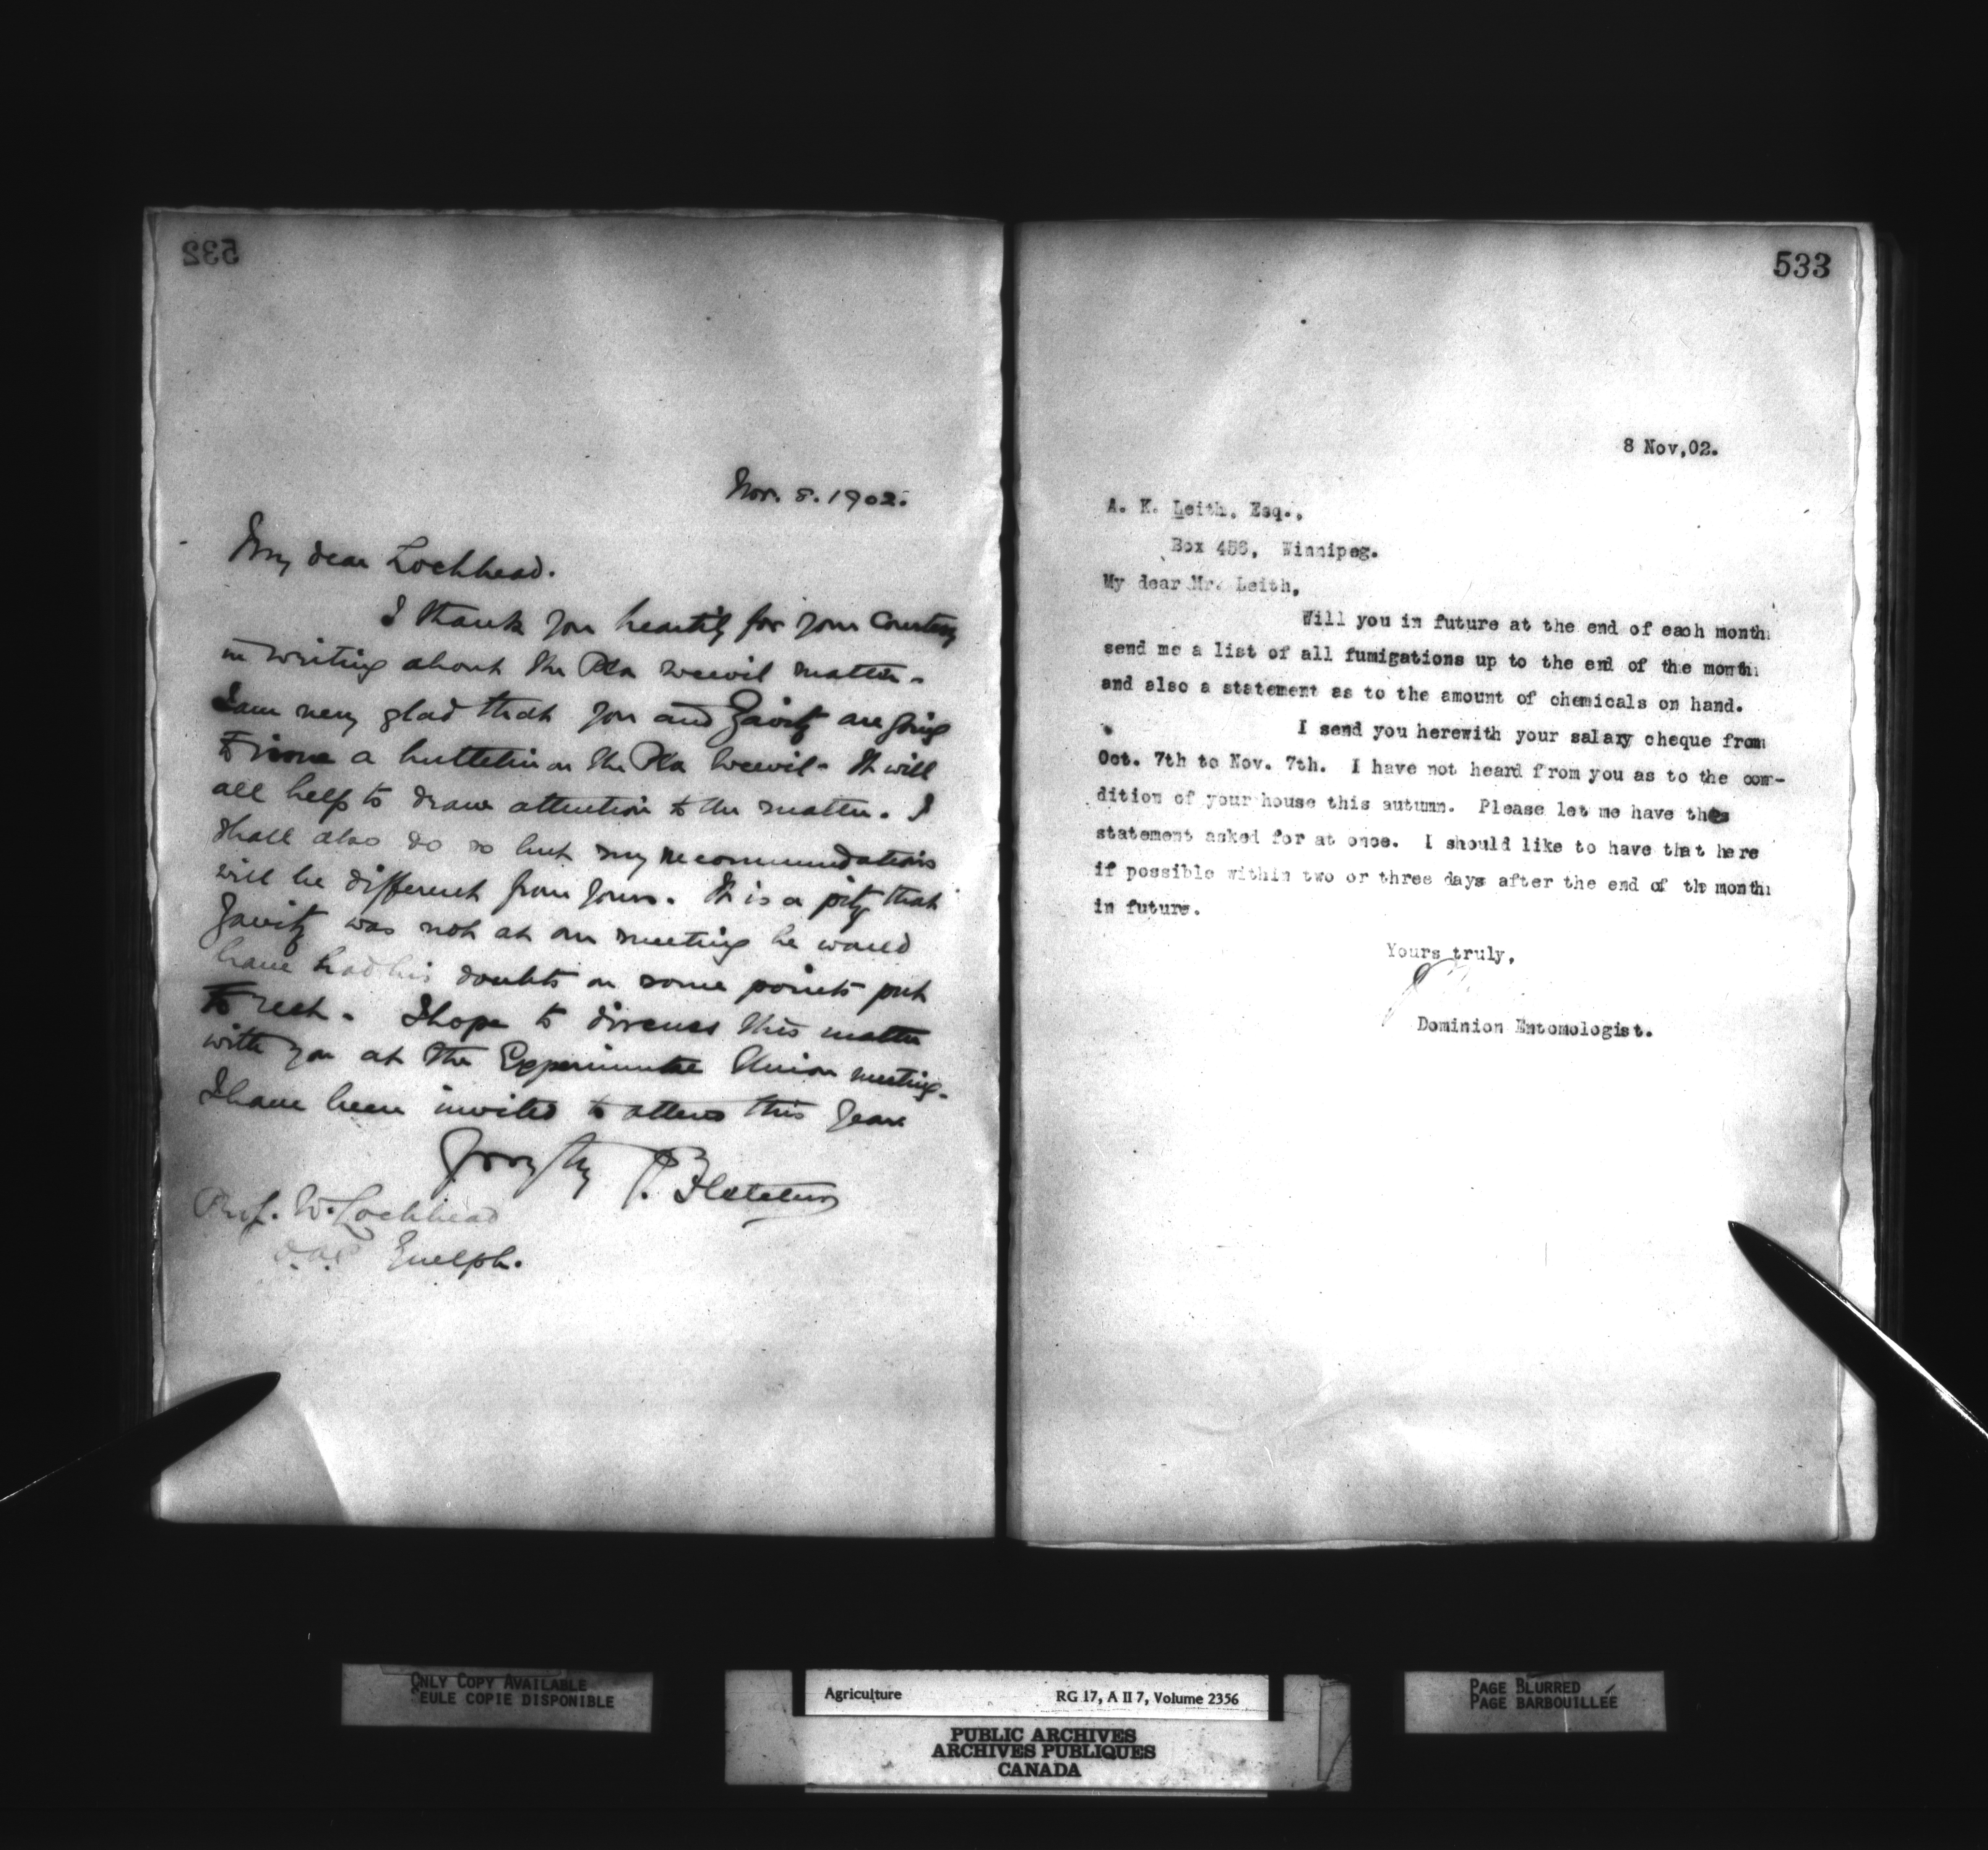 532
Nov. 8. 1902.
My dear Lochhead.
I thank you heartily for your courtesy
in writing about the Pea weevil matter.
I am very glad that you and Zavitz are going
to issue a bulletin on the Pea Weevil. It will
all help to draw attention to the matter. I
shall also do so but my recommendations
will be different from yours. It is a pity that
Zavitz was not at our meeting he would
have had his doubts on some points put
to rest. I hope to discuss this matter
with you at the Experimental Union meeting.
I have been invited to attend this year
J. Fletcher
Prof. W. Lochhead
O.A.C. Guelph.
533
8 Nov,02.
A. K. Leith, Esq.,
Box 456, Winnipeg.
My dear Mr. Leith,
Will you in future at the end of each month
send me a list of all fumigations up to the end of the month
and also a statement as to the amount of chemicals on hand.
I send you herewith your salary cheque from
Oct. 7th to Nov. 7th. I have not heard from you as to the con-
dition of your house this autumn. Please let me have the
statement asked for at once. I should like to have that here
if possible within two or three days after the end of the month
in future.
Yours truly,
Dominion Entomologist.
ONLY COPY AVAILABLE
SEULE COPIE DISPONIBLE
Agriculture RG 17, A II 7, Volume 2356
PUBLIC ARCHIVES
ARCHIVES PUBLIQUES
CANADA
PAGE BLURRED
PAGE BARBOUILLÉE